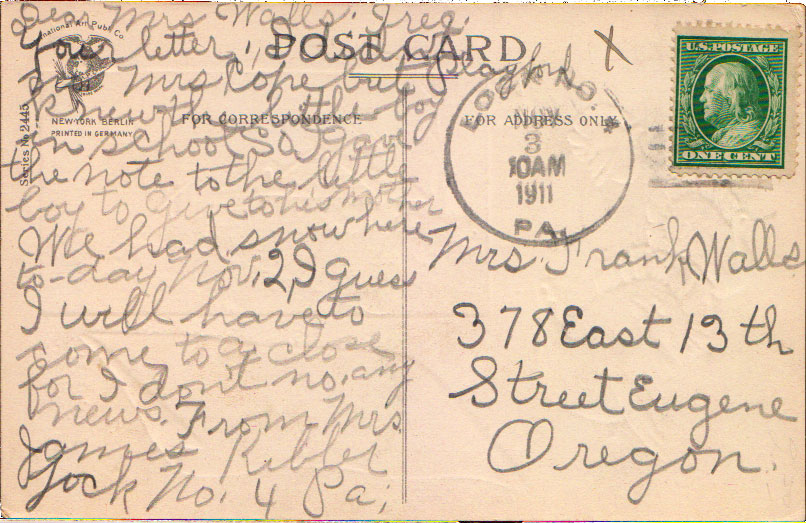 Dear Mrs Walls. I rec.
Your letter,
Mrs Cope but Clayford
knew the little boy
in school So gave
the note to the little
boy to give to his mother
We had snow here
to-day Nov. 2, I guess
I will have to
come to a close
for I don't no. any
news. From Mrs.
James Kibler
Lock No. 4 Pa;
International Art Publ. Co.
NEW YORK BERLIN
PRINTED IN GERMANY
Series No. 2445
POST CARD
FOR CORRESPONDENCE
FOR ADDRESS ONLY
X
LOCK NO. 4
NOV
3
10 AM
1911
PA.
U.S. POSTAGE
ONE CENT
Mrs. Frank Walls
378 East 13th
Street Eugene
Oregon.